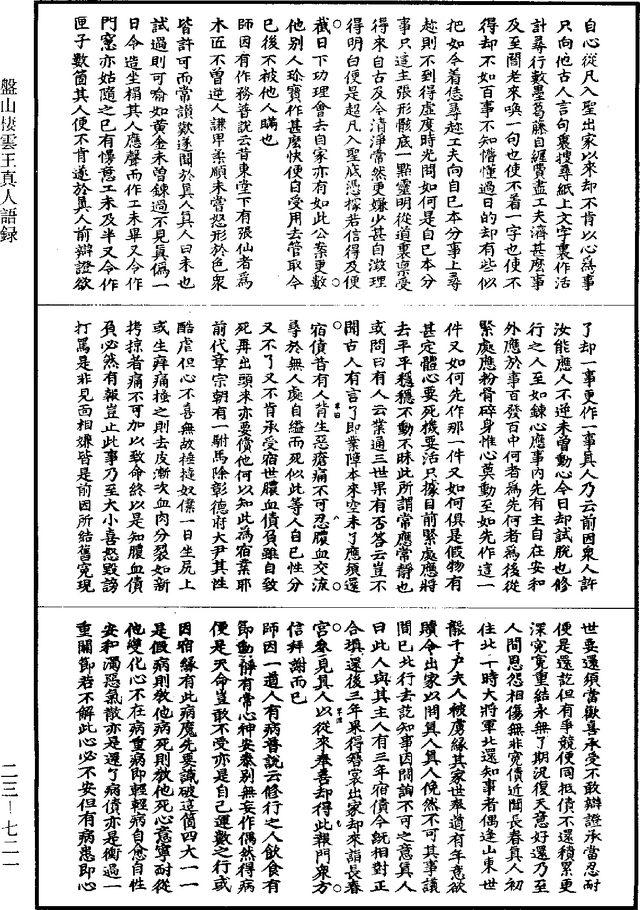 自心從凡入聖出家以來却不肯以心為事
只向他古人言句裏搜尋紙上文字裏作活
計尋行數墨葛藤自纏費盡工夫濟甚麼事
及至閻老來喚一句也使不着一字也使不
得却不如百事不知懵懂過日的却有些似
把如今着恁尋趂工夫向自己本分事上尋
趂則不到得虛度時光問如何是自己本分
事只這主張形骸底一點靈明從道裏稟受
得來自古及今清淨常然更嫌少甚自澂理
得明白便是超凡入聖底憑據若信得及便
截日下功理會去自家亦有如此公案更數
他別人珍寶作甚麼快便自受用去管取今
已後不被他人瞞也
師因有作務普說云昔東堂下有張仙者為
木匠不曾逆人謙卑柔順未嘗怒形於色衆
皆許可而常讚歎遂聞於真人真人曰未也
試過則可喻如黃金未曾鍊過不見真偽一
日令造坐榻其人應聲而作工未畢又令作
門窻亦姑隨之已有慢意工未及半又令作
匣子數箇其人便不肯遂於真人前辯證欲
了却一事更作一事真人乃云前因衆人許
汝能應人不逆未曾動心今日却試脫也修
行之人至如鍊心應事內先有主自在安和
外應於事百發百中何者為先何者為後從
緊處應粉骨碎身惟心莫動至如先作這一
件又如何先作那一件又如何俱是假物有
甚定體心要死機要活只據目前緊處應將
去平平穩穩不動不昧此所謂常應常靜也
或問曰有人云業通三世果有否答云豈不
聞古人有言了即業障本來空未了應須還
宿債昔有人背生惡瘡痛不可忍膿血交流
尋於無人處自縊而死似此等人自己性分
又不了又不肯承受宿世膿血債負雖自致
死再出頭來亦要償他何以知此為宿業耶
前代章宗朝有一駙馬除彰德府大尹其性
酷虐但心不喜無故搥撻奴僕一日坐尻上
或生痒痛搔之則去皮漸次血肉分裂如新
拷掠者痛不可加以致命終以是知膿血債
負必然有報豈止此事乃至大小喜怒毀謗
打罵是非見面相嫌皆是前因所結舊冤現
世要還須當歡喜承受不敢辯證承當忍耐
便是還訖但有爭競便同抵債不還積累更
深寃寃重結永無了期況復天意好還乃至
人間恩怨相傷無非宿債近聞長春真人初
住北一時大將軍北還知事者偶逢山東世
襲千戶夫人被虜緣其家世奉道有年意欲
贖令出家以問真人真人俛然不可其事議
間已北行去訖知事因問說不可之意真人
曰此人與其主人有三年宿債今旣相對正
合填還後三年果得簪裳出家却來詣長春
宮參見真人以從來奉善却得此報門衆方
信拜謝而已
師因一道人有病普說云修行之人飲食有
節動靜有常心神安泰別無妄作偶然得病
便是天命豈敢不受亦是自己運數之行或
因宿緣有此病魔先要識破這箇四大一一
是假病則教他病死則教他死心意寧耐從
他變化心不在病重病即輕輕病自愈自性
安和濁惡氣散亦是還了病債亦是衝過一
重關節若不解此心必不安但有病患即心
盤山棲雲王真人語録
二三—七二一